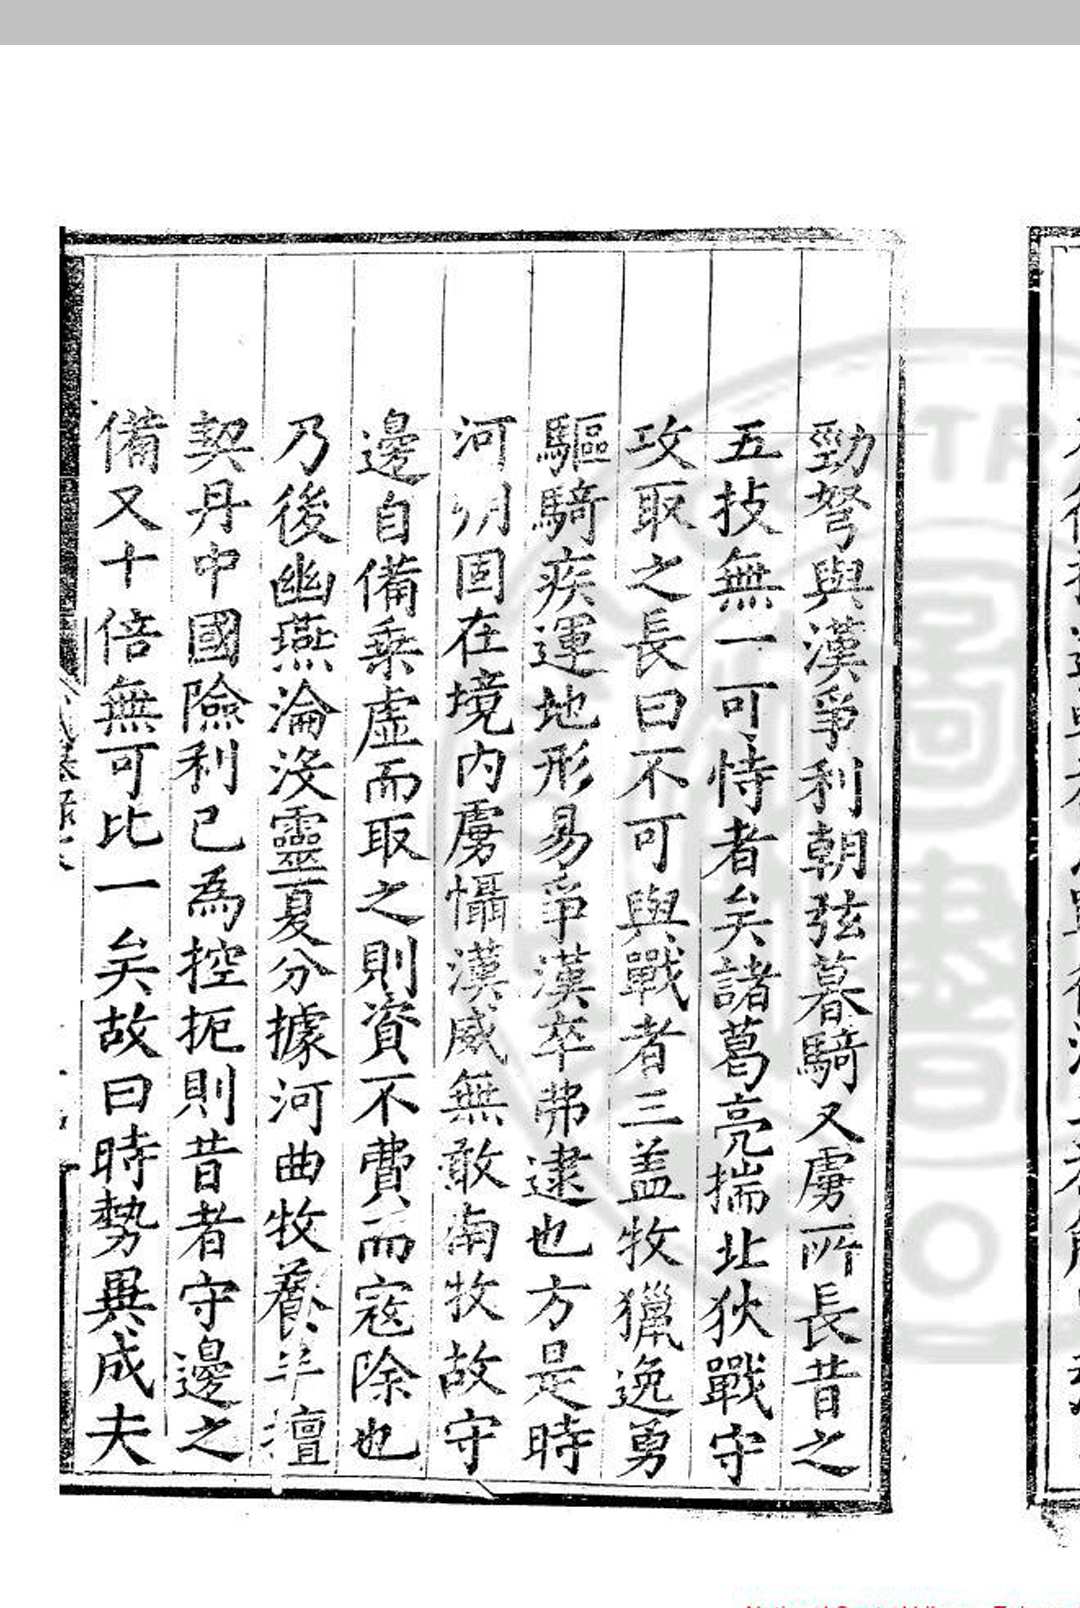 勁弩與漢爭利朝弦暮騎又虜所長昔之
五技無一可恃者矣諸葛亮揣北狄戰守
攻取之長曰不可與戰者三盖牧獵逸勇
驅騎疾運地形易爭漢卒弗逮也方是時
河朔固在境内虜懾漢威無敢南牧故守
邊自備乗虛而取之則資不費而寇除也
乃後幽燕淪沒靈夏分據河曲牧養羊
契丹中國險利已為控扼則昔者守邊之
備又十倍無可比一矣故曰時勢異成夫